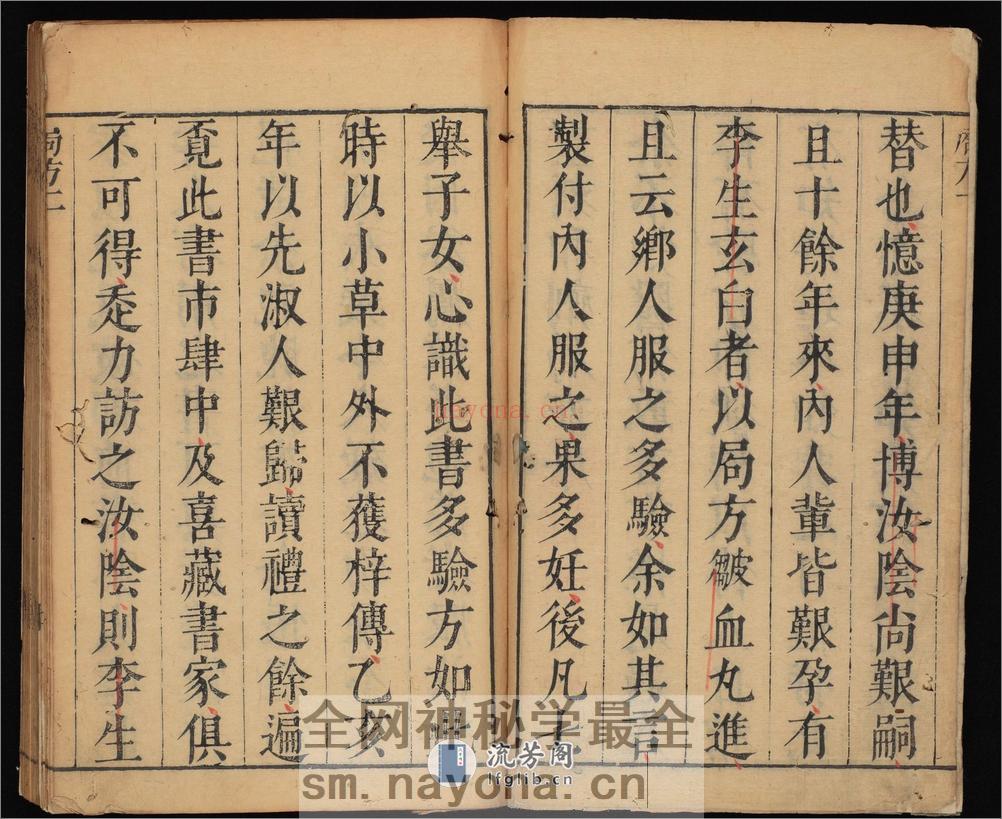 替也憶庚申年博汝陰尚艱嗣
且十餘年來內人輩皆艱孕有
李生玄白者以局方皺血丸進
且云鄉人服之多驗余如其言
製付內人服之果多妊後凡主
舉子女心識此書多驗方如神
時以小草中外不獲梓傳乙亥
年以先淑人艱歸讀禮之餘遍
覔此書市肆中及喜藏書家俱
不可得走力訪之汝陰則李生
局方一
nayona.cn
全网神秘学最全
流芳阁
lfglib.cn
sm.nayona.cn